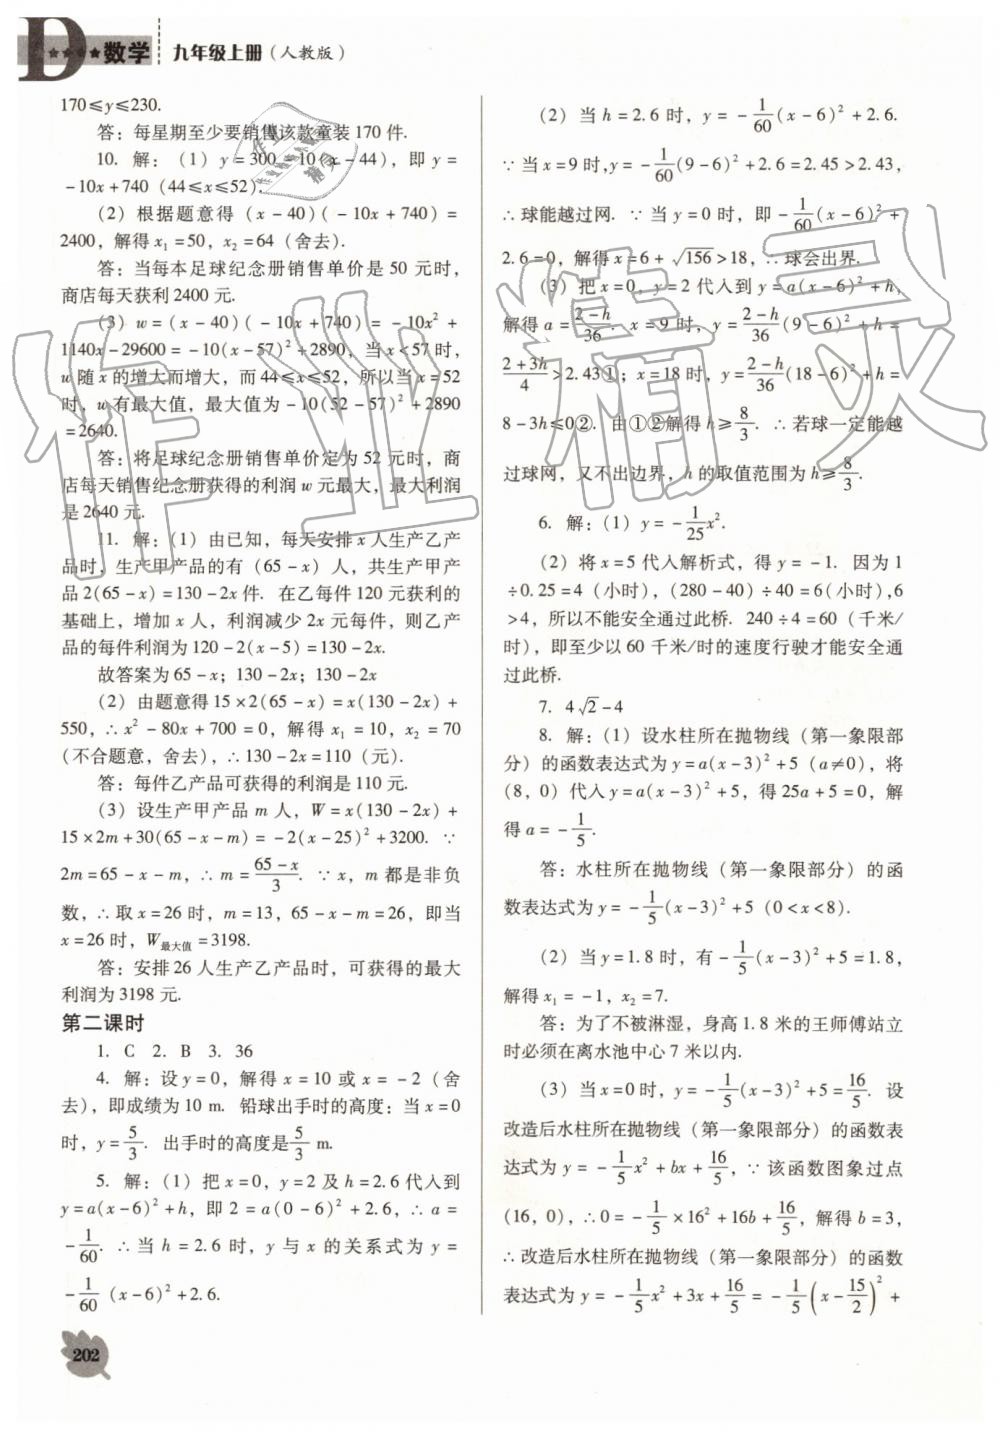 D ★★★★ 数学 九年级上册（人教版）
170≤y≤230.
答：每星期至少要销售该款童装 170 件.
10. 解：（1）y=300-10(x-44)，即 y=
-10x+740（44≤x≤52）.
（2）根据题意得（x-40）(-10x+740)=
2400，解得 x₁=50，x₂=64（舍去）.
答：当每本足球纪念册销售单价是 50 元时，
商店每天获利 2400 元.
（3）w=(x-40)(-10x+740)=-10x²+
1140x-29600=-10(x-57)²+2890，当 x<57 时，
w 随 x 的增大而增大，而 44≤x≤52，所以当 x=52
时，w 有最大值，最大值为-10(52-57)²+2890
=2640.
答：将足球纪念册销售单价定为 52 元时，商
店每天销售纪念册获得的利润 w 元最大，最大利润
是 2640 元.
11. 解：（1）由已知，每天安排 x 人生产乙产
品时，生产甲产品的有（65-x）人，共生产甲产
品 2(65-x)=130-2x 件. 在乙每件 120 元获利的
基础上，增加 x 人，利润减少 2x 元每件，则乙产
品的每件利润为 120-2(x-5)=130-2x.
故答案为 65-x；130-2x；130-2x
（2）由题意得 15×2(65-x)=x(130-2x)+
550，∴x²-80x+700=0，解得 x₁=10，x₂=70
（不合题意，舍去），∴130-2x=110（元）.
答：每件乙产品可获得的利润是 110 元.
（3）设生产甲产品 m 人，W=x(130-2x)+
15×2m+30(65-x-m)=-2(x-25)²+3200. ∵
2m=65-x-m，∴m=(65-x)/3. ∵x，m 都是非负
数，∴取 x=26 时，m=13，65-x-m=26，即当
x=26 时，W最大值=3198.
答：安排 26 人生产乙产品时，可获得的最大
利润为 3198 元.
第二课时
1. C 2. B 3. 36
4. 解：设 y=0，解得 x=10 或 x=-2（舍
去），即成绩为 10 m. 铅球出手时的高度：当 x=0
时，y=5/3. 出手时的高度是5/3 m.
5. 解：（1）把 x=0，y=2 及 h=2.6 代入到
y=a(x-6)²+h，即 2=a(0-6)²+2.6，∴a=
-1/60. ∴当 h=2.6 时，y 与 x 的关系式为 y=
-1/60 (x-6)²+2.6.
（2）当 h=2.6 时，y=-1/60(x-6)²+2.6.
∵当 x=9 时，y=-1/60(9-6)²+2.6=2.45>2.43，
∴球能越过网. ∵当 y=0 时，即-1/60(x-6)²+
2.6=0，解得 x=6+√156>18，∴球会出界.
（3）把 x=0，y=2 代入到 y=a(x-6)²+h，
解得 a=(2-h)/36. x=9 时，y=(2-h)/36(9-6)²+h=
(2+3h)/4>2.43①；x=18 时，y=(2-h)/36(18-6)²+h=
8-3h≤0②. 由①②解得 h≥8/3. ∴若球一定能越
过球网，又不出边界，h 的取值范围为 h≥8/3.
6. 解：（1）y=-1/25x².
（2）将 x=5 代入解析式，得 y=-1. 因为 1
÷0.25=4（小时），（280-40）÷40=6（小时），6
>4，所以不能安全通过此桥. 240÷4=60（千米/
时），即至少以 60 千米/时的速度行驶才能安全通
过此桥.
7. 4√2-4
8. 解：（1）设水柱所在抛物线（第一象限部
分）的函数表达式为 y=a(x-3)²+5（a≠0），将
（8，0）代入 y=a(x-3)²+5，得 25a+5=0，解
得 a=-1/5.
答：水柱所在抛物线（第一象限部分）的函
数表达式为 y=-1/5(x-3)²+5（0<x<8）.
（2）当 y=1.8 时，有-1/5(x-3)²+5=1.8，
解得 x₁=-1，x₂=7.
答：为了不被淋湿，身高 1.8 米的王师傅站立
时必须在离水池中心 7 米以内.
（3）当 x=0 时，y=-1/5(x-3)²+5=16/5. 设
改造后水柱所在抛物线（第一象限部分）的函数表
达式为 y=-1/5x²+bx+16/5，∵该函数图象过点
（16，0），∴0=-1/5×16²+16b+16/5，解得 b=3，
∴改造后水柱所在抛物线（第一象限部分）的函数
表达式为 y=-1/5x²+3x+16/5=-1/5(x-15/2)²+
202
作业精灵